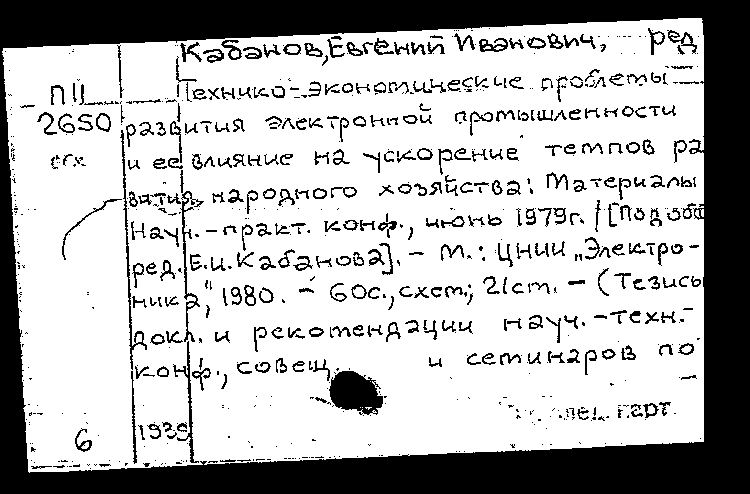 Кабанов, Евгений Иванович, ред
П II Технико-экономические проблемы
2650 развития электронной промышленности
и ее влияние на ускорение темпов ра
вития народного хозяйства: Материалы
Науч.-практ. конф., июнь 1979г. / [Под общ
ред. Е.И. Кабанова]. - М.: ЦНИИ „Электро-
ника", 1980. - 60с., схем.; 21см. - (Тезисы
докл. и рекомендации науч.-техн.
конф., совещ. и семинаров по
6 1939 карт.